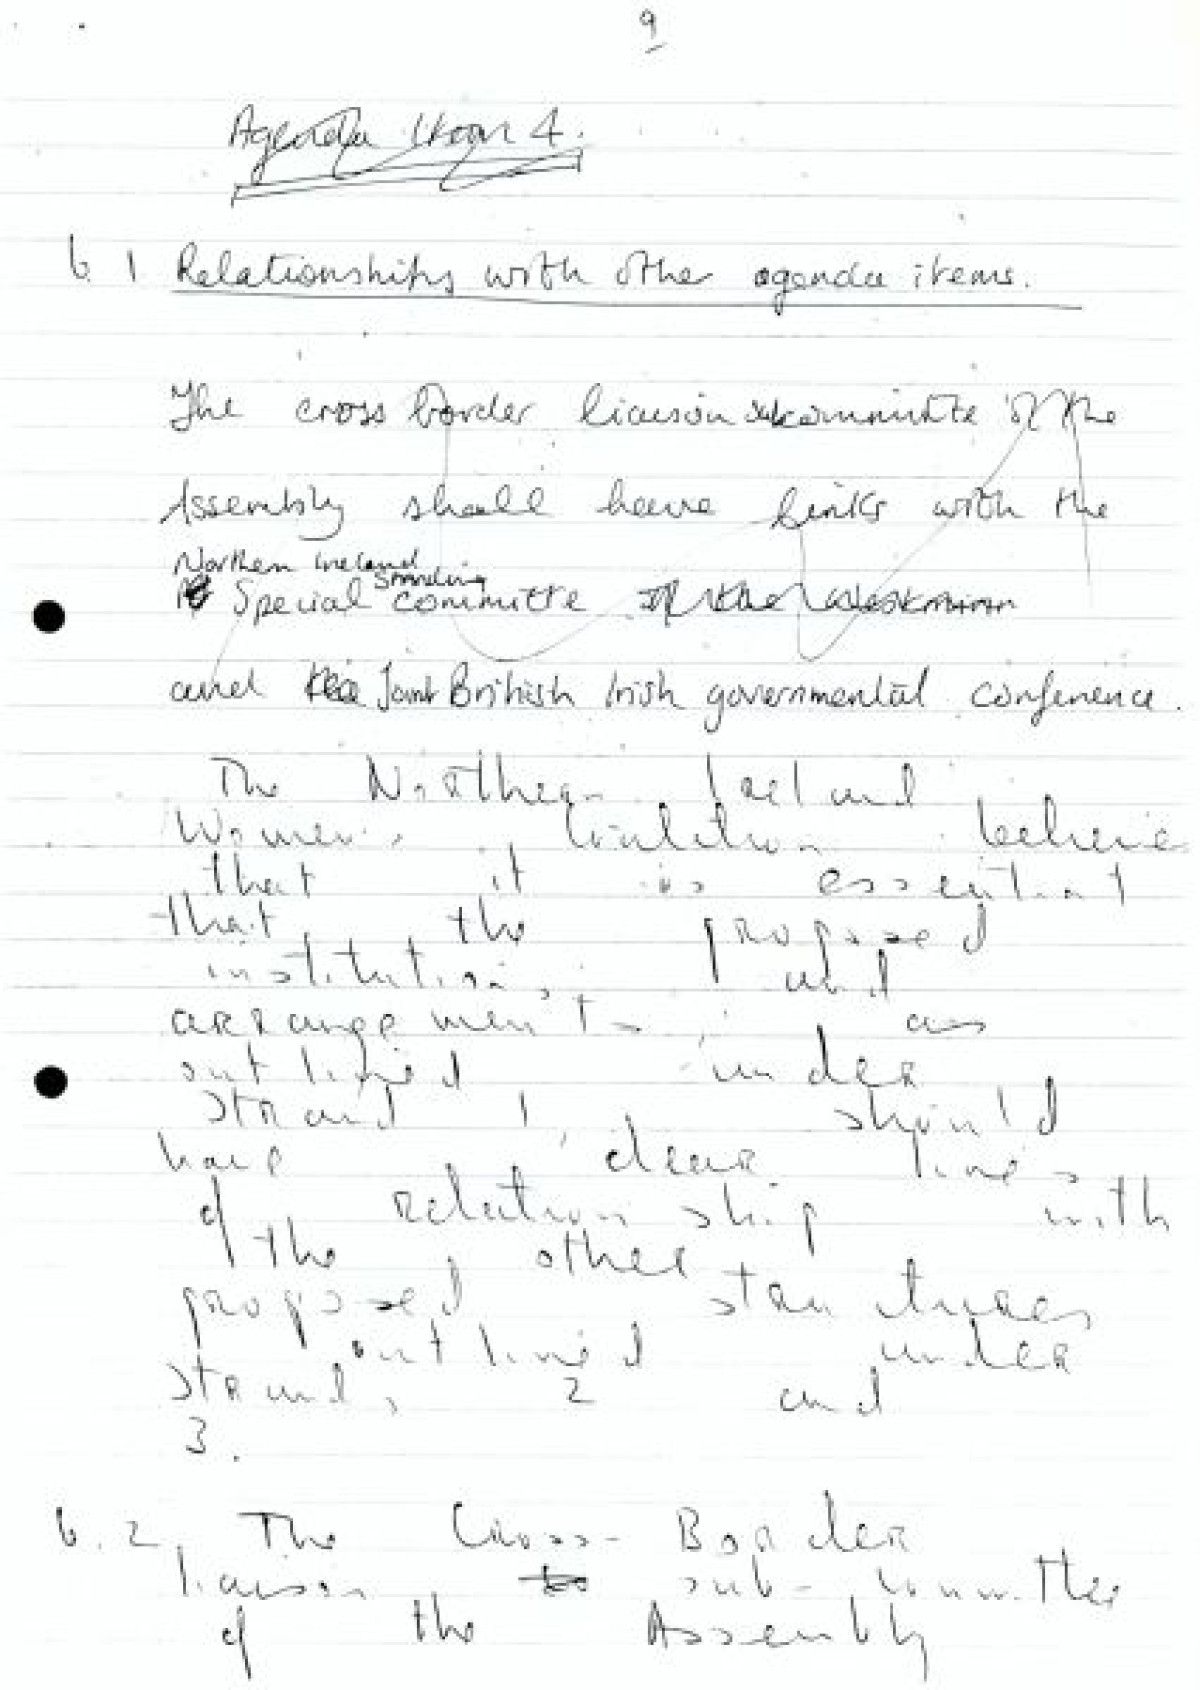 9
Agenda Item 4.
6.1 Relationships with other agenda items.
The cross border liaison subcommitte of the
Assembly shall have links with the
Northern Ireland
Special Standing committe
and the Joint British Irish governmental conference.
The Northern Ireland
Women's Coalition believe
that it is essential
that the proposed
institutions and
arrangements as
outlined under
strand 1, should
have clear lines
of relationship with
the other
proposed structures
outlined under
strands 2 and
3.
6.2 The Cross-Border
liaison to sub-committee
of the Assembly